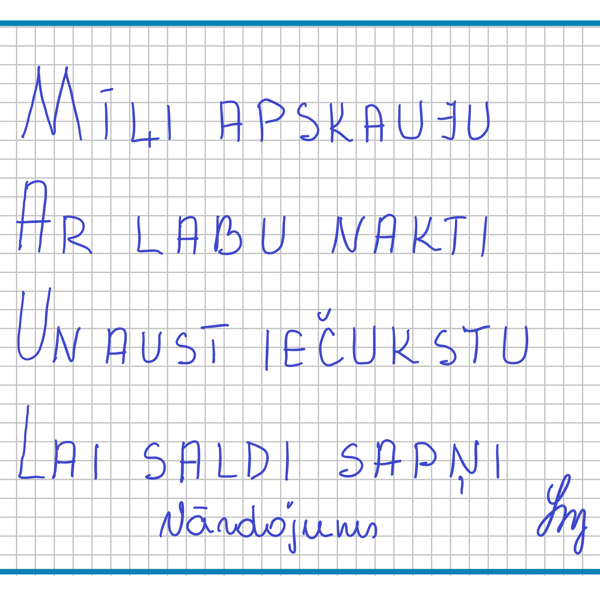 MĪĻI APSKAUJU
AR LABU NAKTI
UN AUSĪ IEČUKSTU
LAI SALDI SAPŅI
Vārdojums